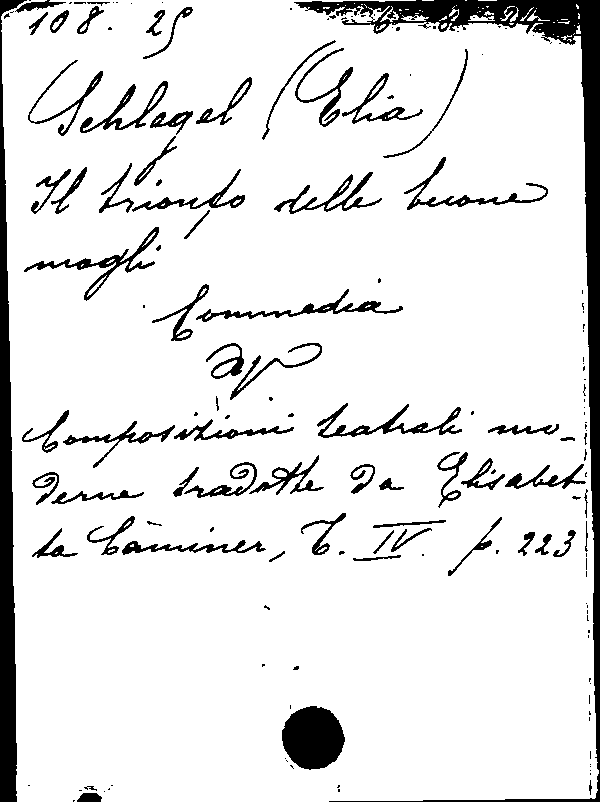 108. 25 6. 8. 24
Schlegel (Elia)
Il trionfo delle buone
mogli
Commedia
Composizioni teatrali mo-
derne tradotte da Elisabet-
ta Càminer, T. IV. p. 223